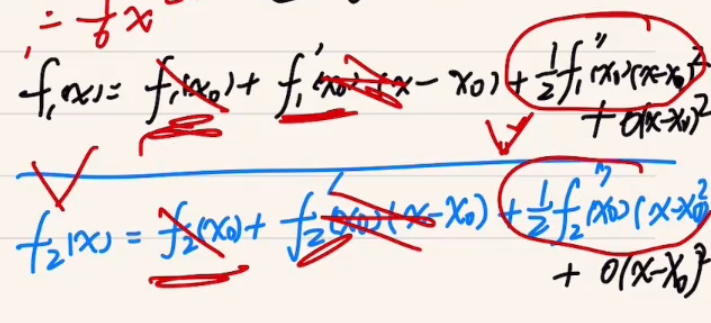 = 1/6 x
f₁(x) = f₁(x₀) + f₁'(x₀)(x-x₀) + 1/2 f₁''(x₀)(x-x₀)²
+ o(x-x₀)²
f₂(x) = f₂(x₀) + f₂'(x₀)(x-x₀) + 1/2 f₂''(x₀)(x-x₀)²
+ o(x-x₀)²